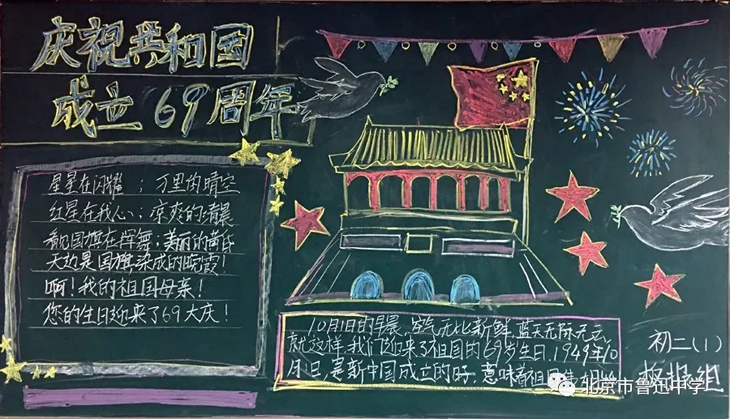 庆祝共和国
成立69周年
星星在闪耀；万里的晴空
红星在我心：凉爽的清晨
看国旗在挥舞：美丽的黄昏
天边是国旗染成的晚霞！
啊！我的祖国母亲！
您的生日迎来了69大庆！
10月1日的早晨，空气无比新鲜，蓝天无际无云，
就这样，我们迎来了祖国的69岁生日.1949年10
月1日，是新中国成立的时，意味着祖国
初二(1)
板报组
北京市鲁迅中学